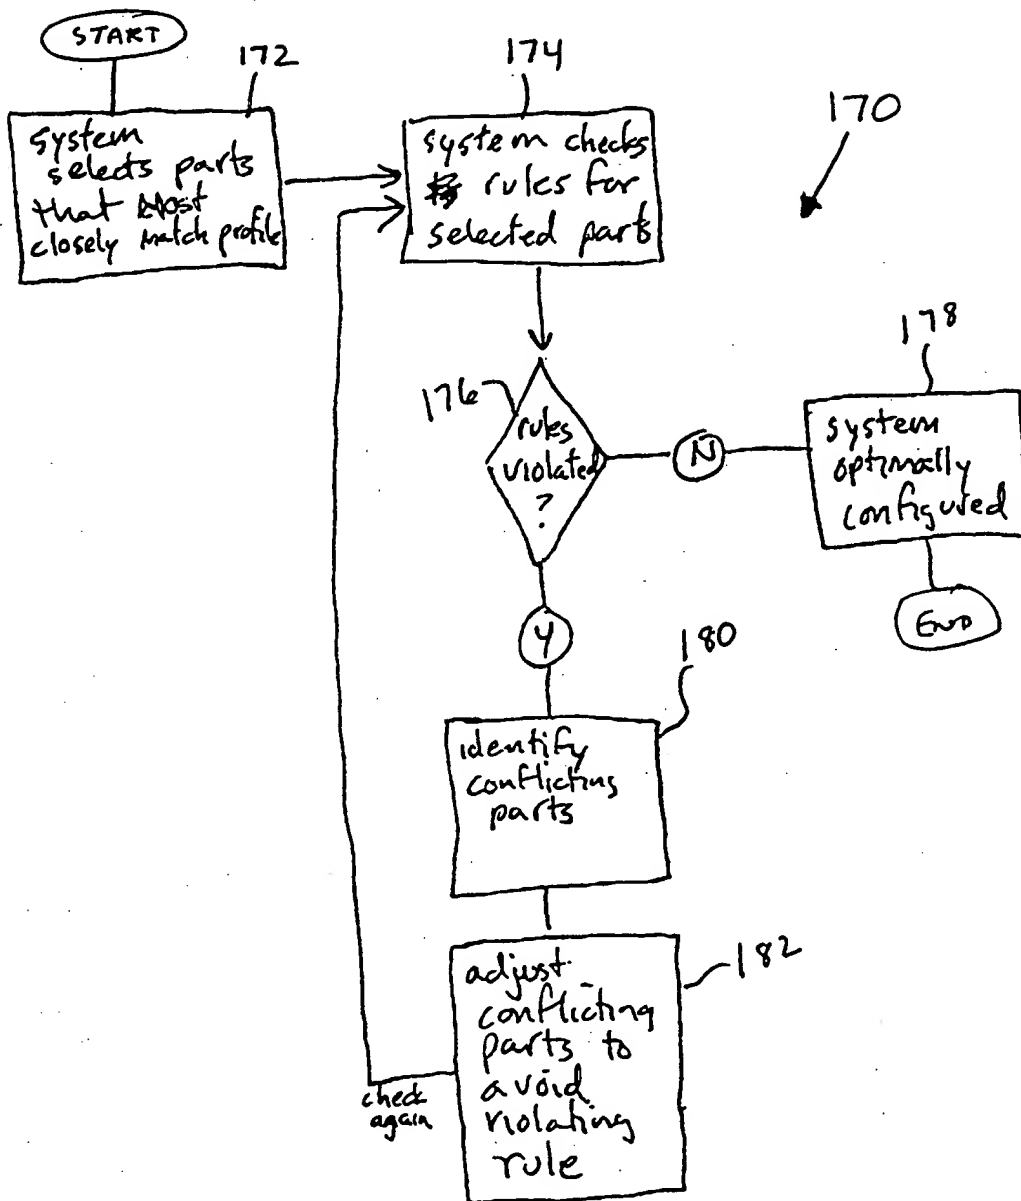 START
172
system
selects parts
that most
closely match profile
174
system checks
rules for
selected parts
170
176
rules
violated
?
N
178
system
optimally
configured
END
Y
180
identify
conflicting
parts
182
adjust
conflicting
parts to
avoid
violating
rule
check
again